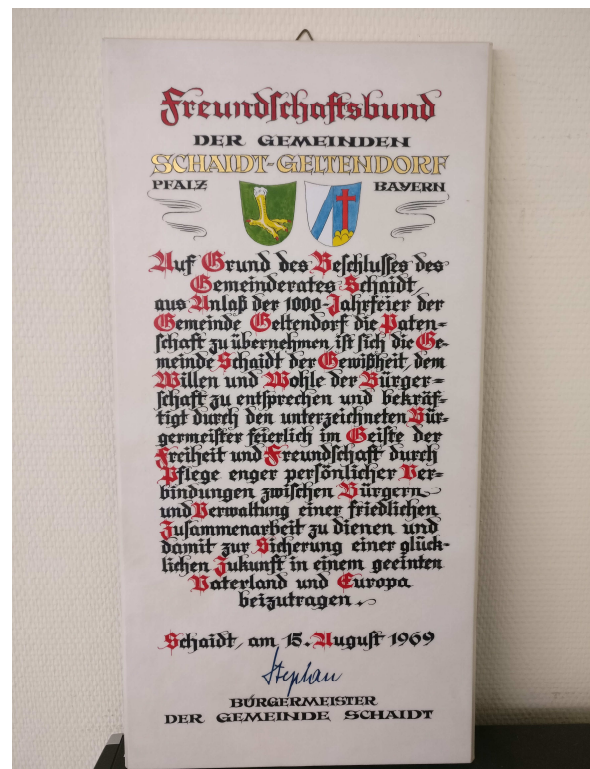 Freundschaftsbund
DER GEMEINDEN
SCHAIDT-GELTENDORF
PFALZ BAYERN
Auf Grund des Beschlusses des
Gemeinderates Schaidt,
aus Anlaß der 1000-Jahrfeier der
Gemeinde Geltendorf die Paten-
schaft zu übernehmen, ist sich die Ge-
meinde Schaidt der Gewißheit, dem
Willen und Wohle der Bürger=
schaft zu entsprechen und bekräf-
tigt durch den unterzeichneten Bür-
germeister feierlich im Geiste der
Freiheit und Freundschaft durch
Pflege enger persönlicher Ver-
bindungen zwischen Bürgern
und Verwaltung einer friedlichen
Zusammenarbeit zu dienen und
damit zur Sicherung einer glück-
lichen Zukunft in einem geeinten
Vaterland und Europa
beizutragen.
Schaidt, am 15. August 1969
Stephan
BÜRGERMEISTER
DER GEMEINDE SCHAIDT